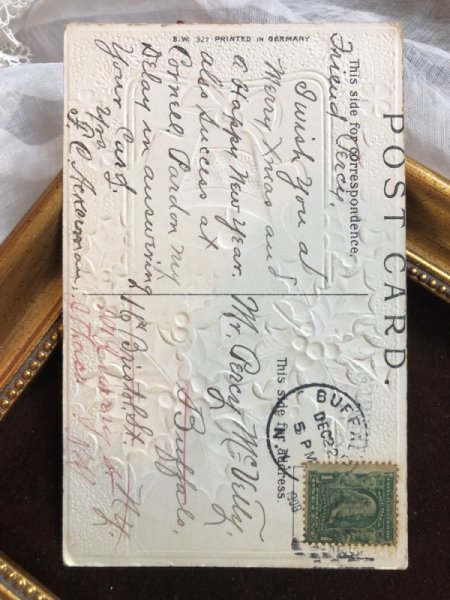 B.W. 327 PRINTED IN GERMANY
POST CARD.
This side for correspondence.
Friend Percy,
I wish you a
Merry Xmas and
a Happy New Year,
also success at
Cornell Pardon my
Delay in answering
Your Card.
Yrs
F. C. Ackerman,
This side for address.
BUFFALO
N.Y.
DEC 22
5 PM
Mr. Percy McVitty,
Buffalo,
16 Bristol St.
N.Y.
Ithaca N.Y.
1
1